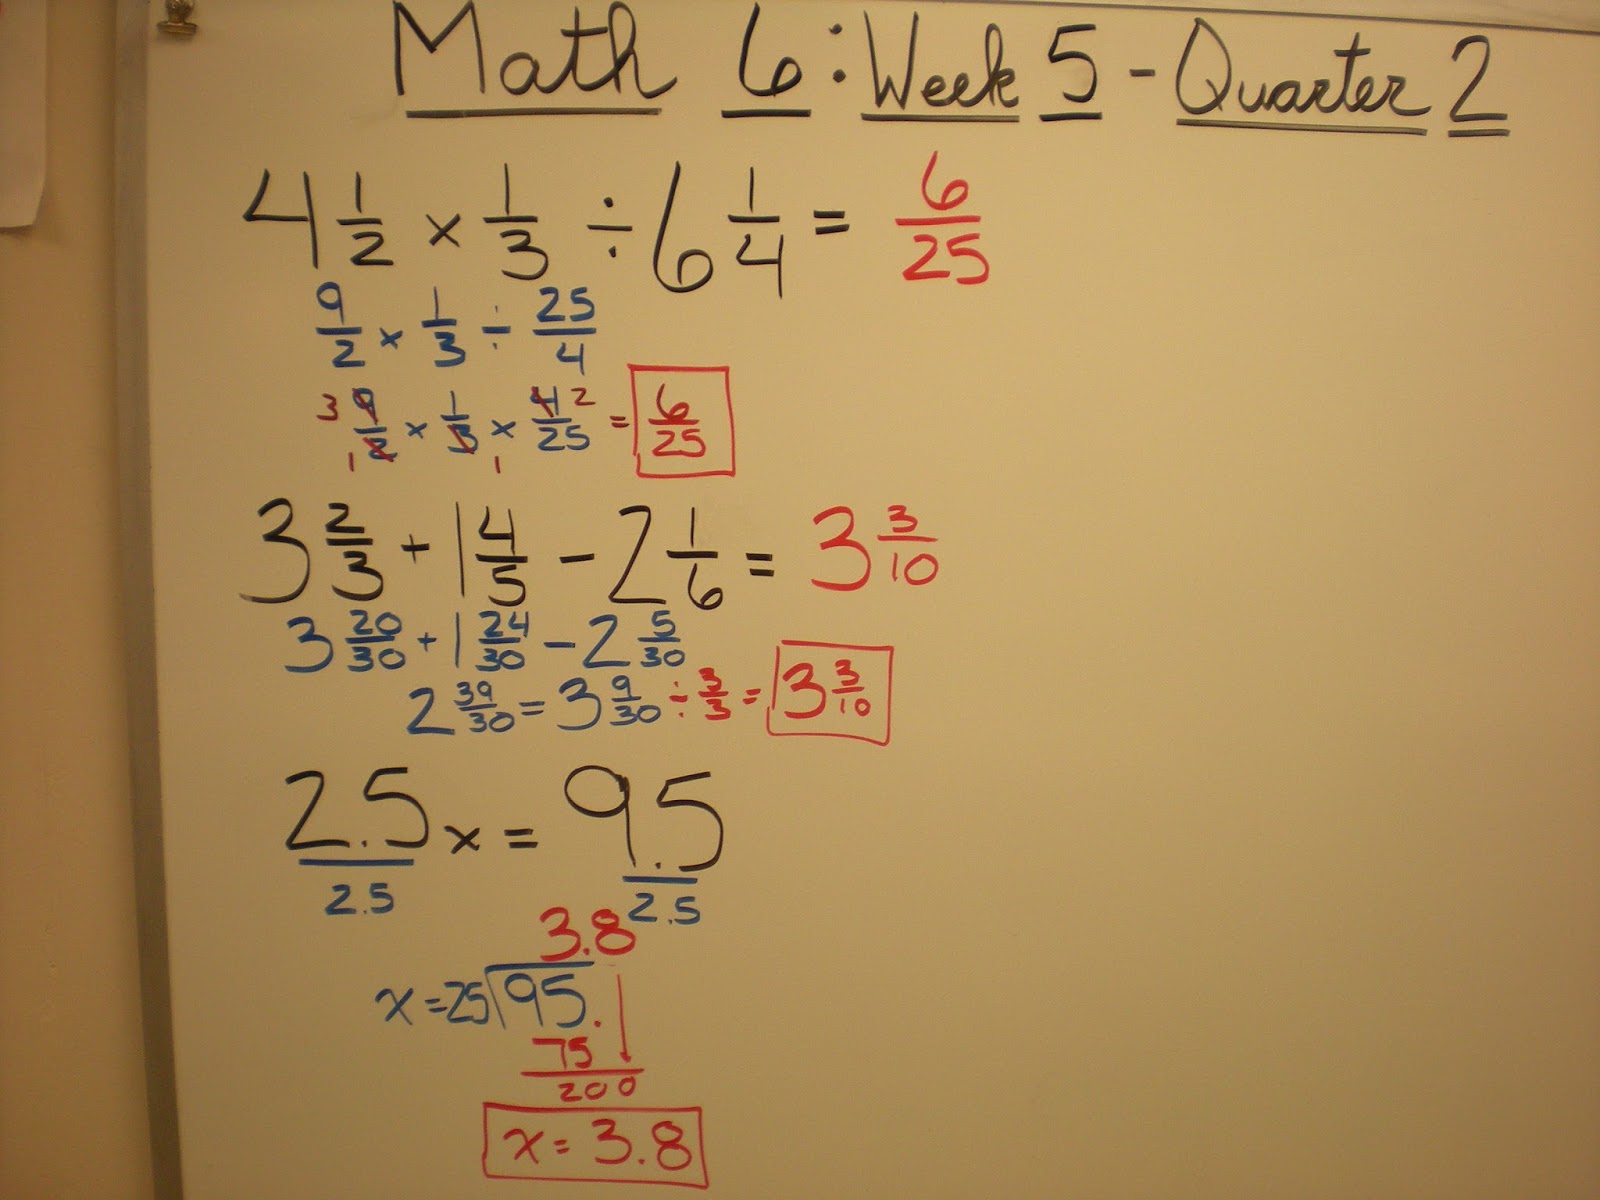 Math 6 : Week 5 - Quarter 2
4 1/2 × 1/3 ÷ 6 1/4 = 6/25
9/2 × 1/3 ÷ 25/4
3 9/2 1 × 1/3 1 × 4/25 2 = 6/25
3 2/3 + 1 4/5 - 2 1/6 = 3 3/10
3 20/30 + 1 24/30 - 2 5/30
2 39/30 = 3 9/30 ÷ 3/3 = 3 3/10
2.5 x = 9.5
2.5 2.5
3.8
x = 25 95.
75
200
x = 3.8